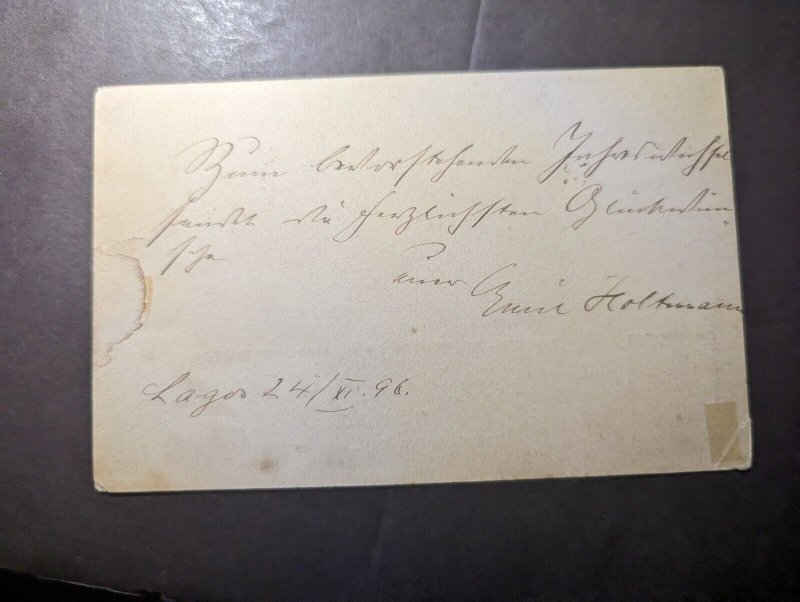 Zum bevorstehenden Jahreswechsel
sendet die herzlichsten Glückwün-
sche
Emil Holtmann
Lagos 24/XI. 96.